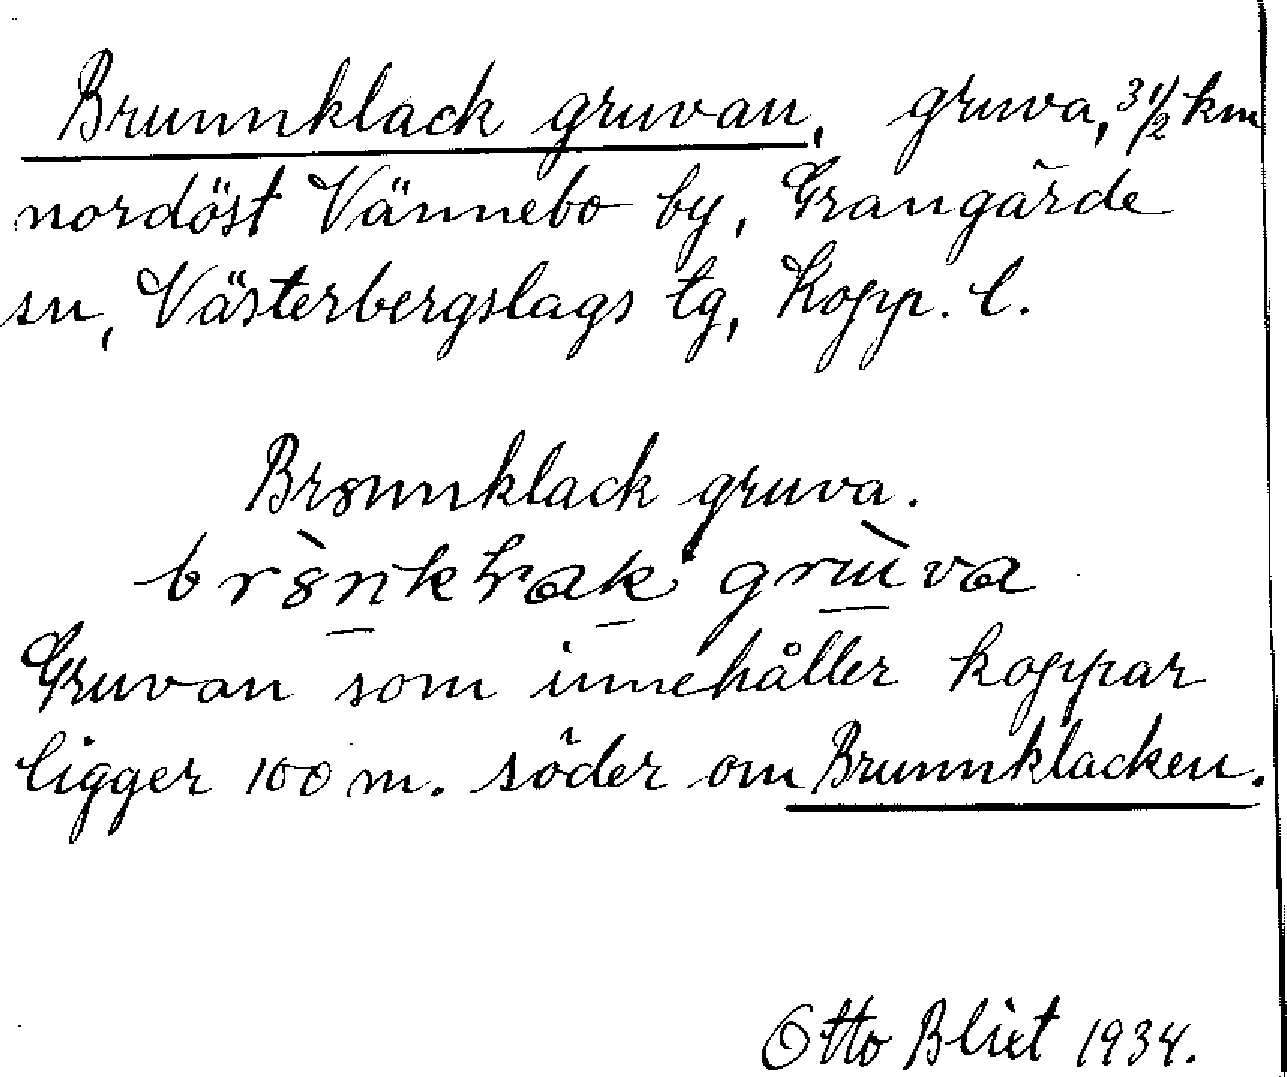 Brunnklack gruvan, gruva, 3 1/2 km
nordöst Vännebo by, Grangärde
sn, Västerbergslags tg, Kopp. l.
Brsunnklack gruva.
gruva
Gruvan som innehåller koppar
ligger 100 m. söder om Brunnklacken.
Otto Blixt 1934.